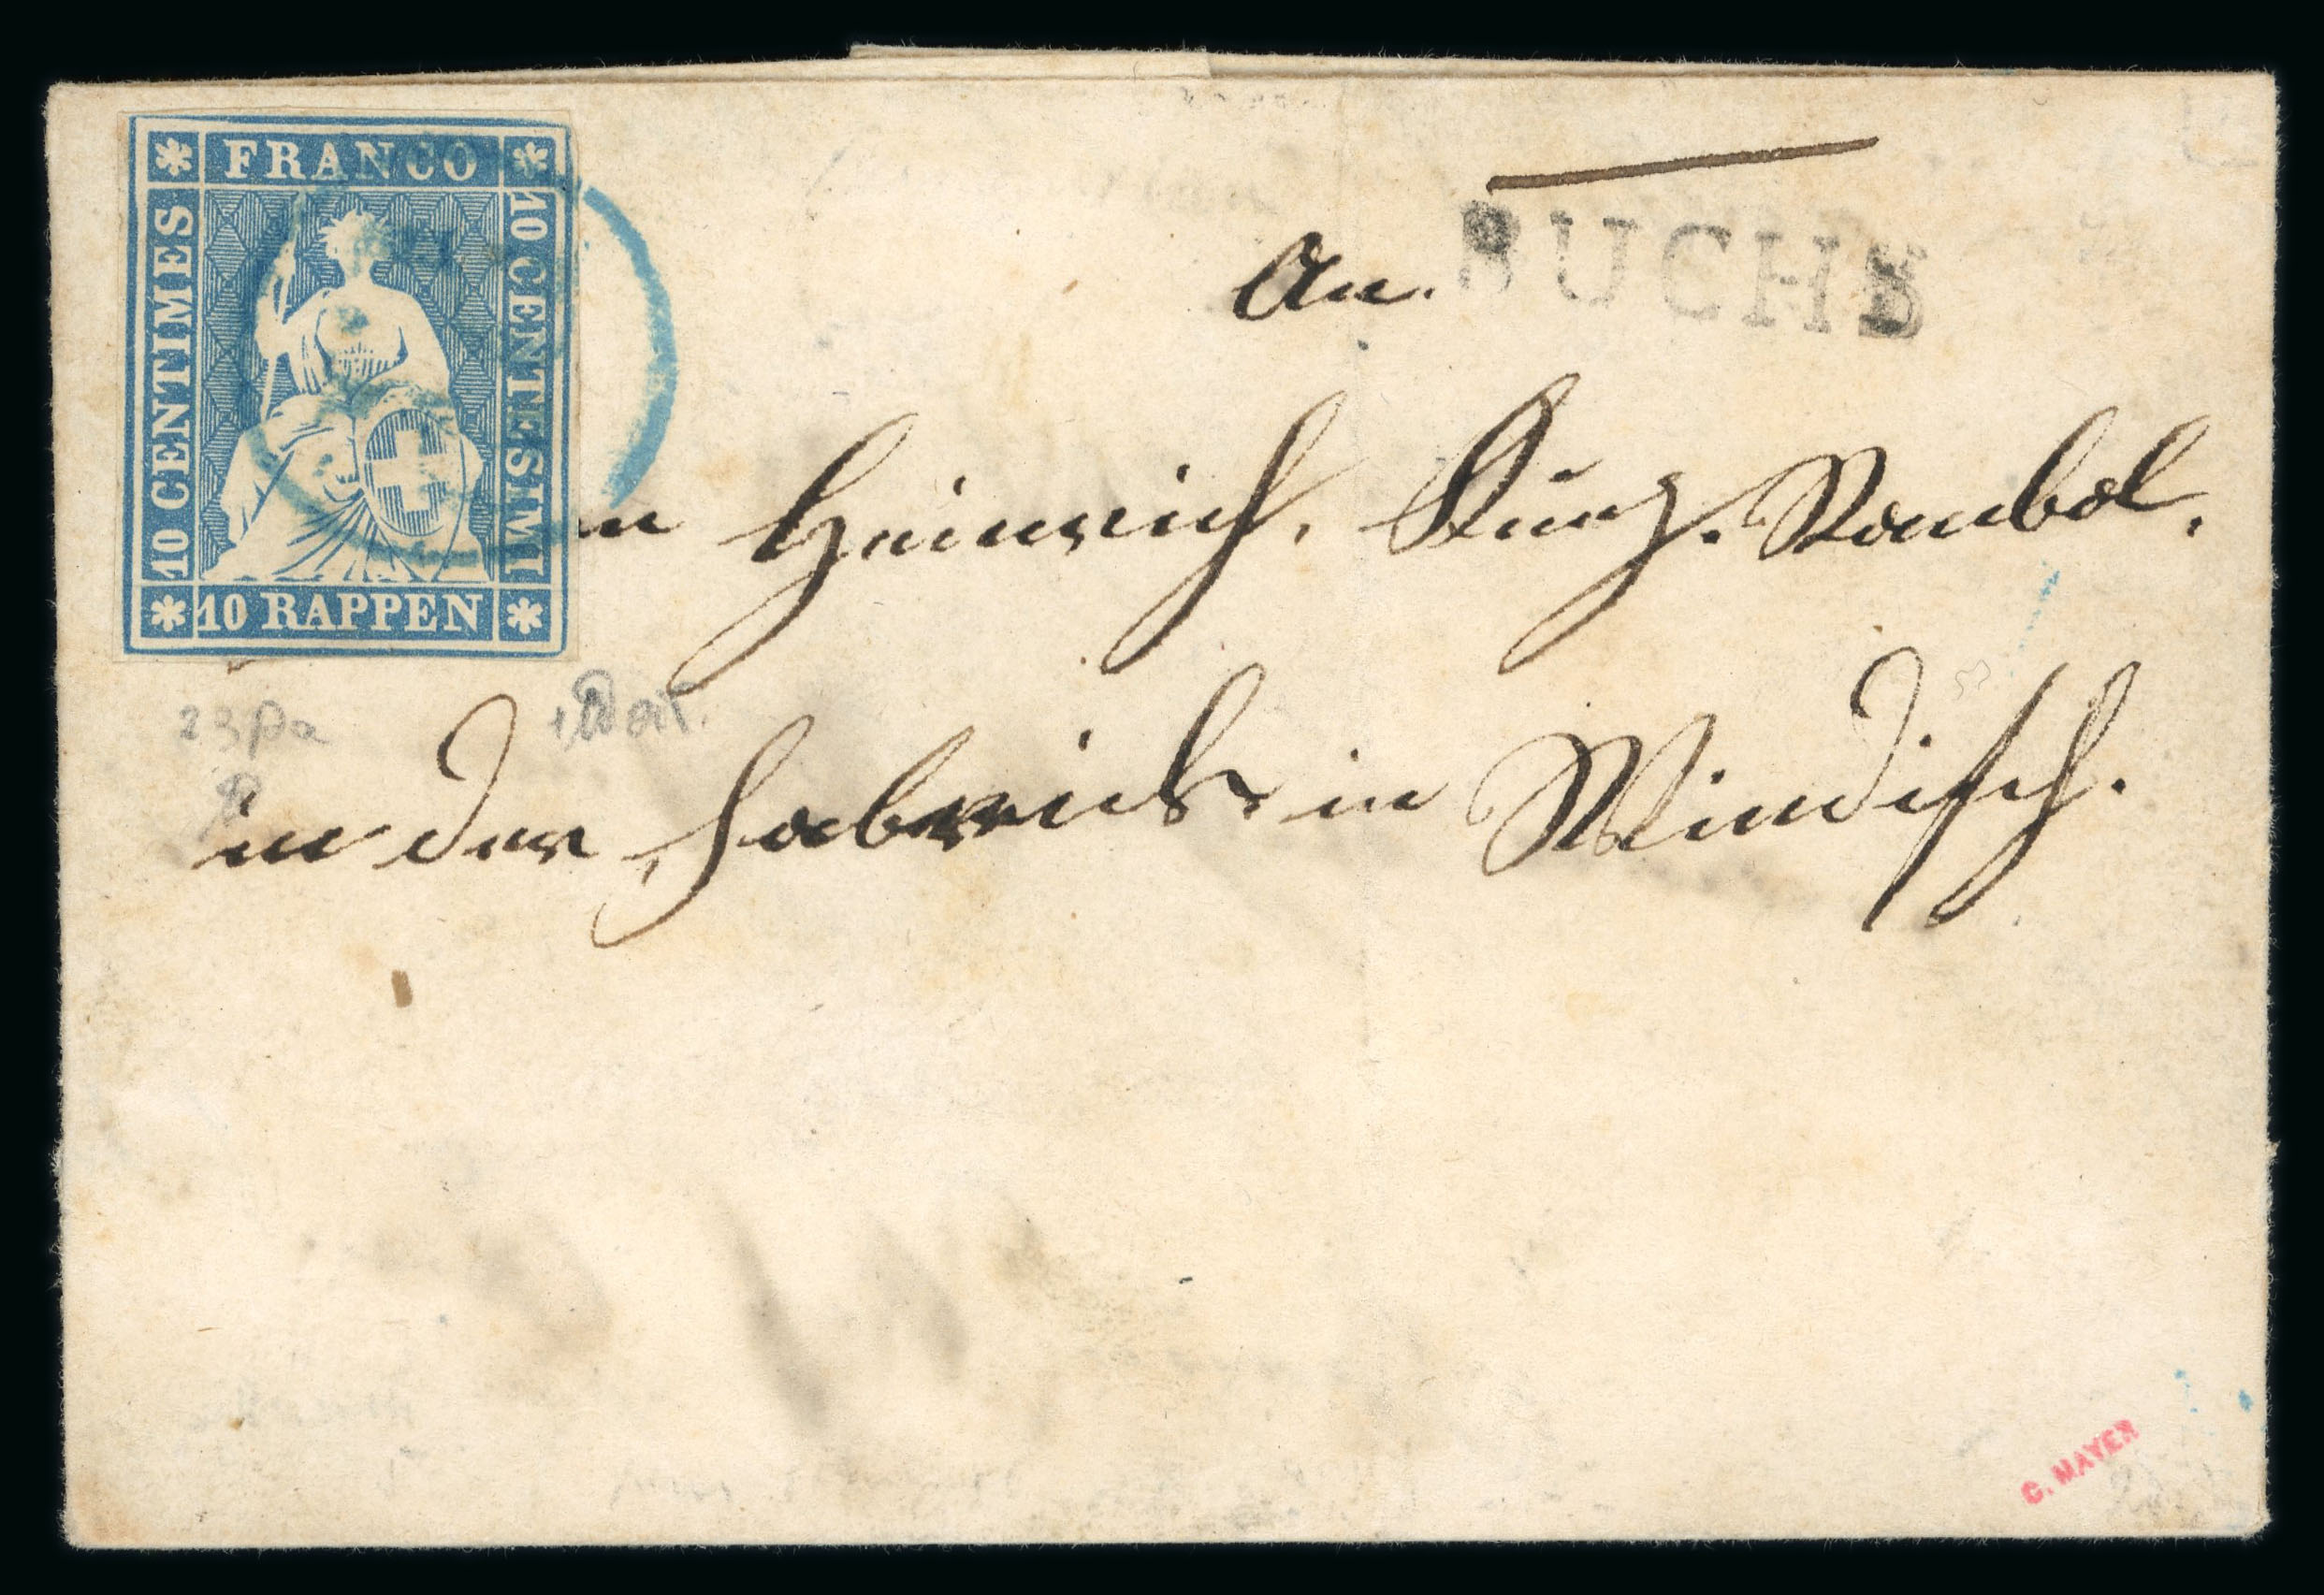 FRANCO
10 CENTIMES
10 CENTESIMI
10 RAPPEN
BUCHS
An.
Heinrich. Kunz.
23Pa
in der Fabrick in Windisch.
C. MAYER